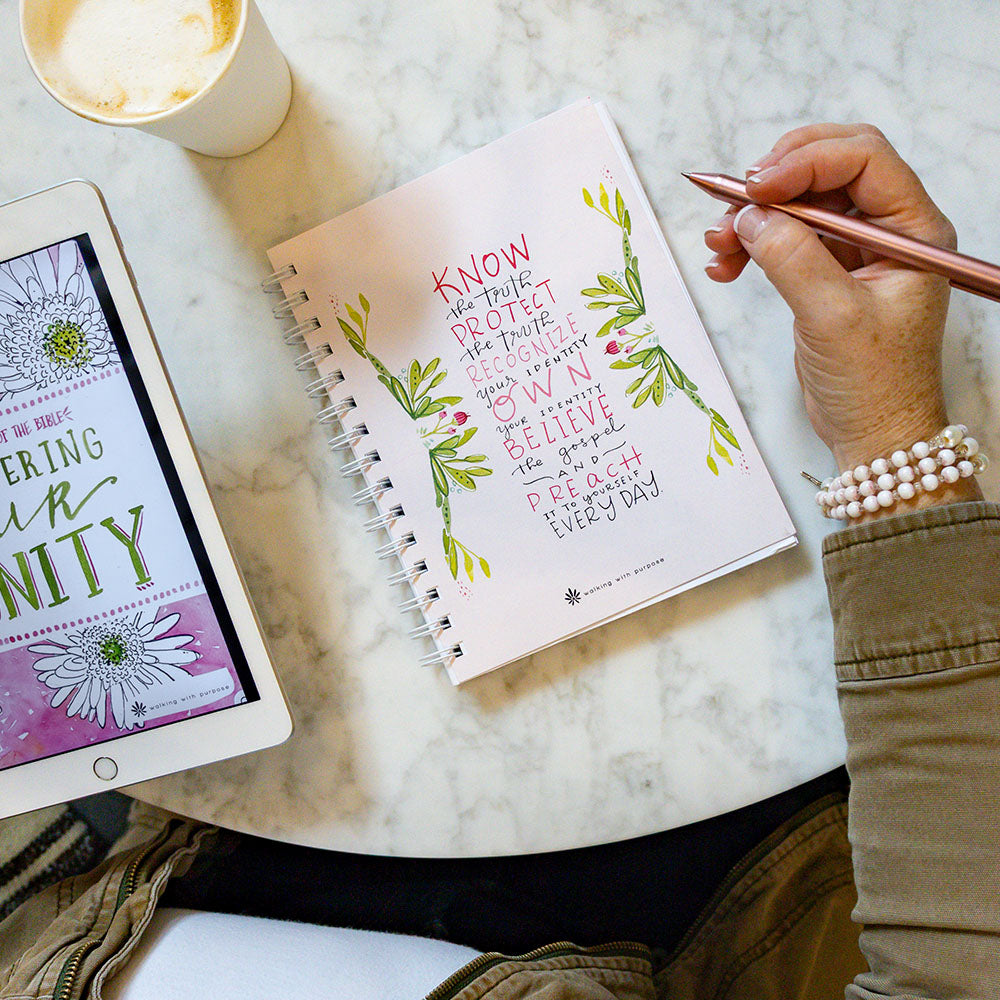 OF THE BIBLE
ERING
UR
NITY
walking with purpose
KNOW
the truth
PROTECT
the truth
RECOGNIZE
your IDENTITY
OWN
YOUR IDENTITY
BELIEVE
the gospel
AND
PREACH
IT TO YOURSELF
EVERY DAY.
walking with purpose